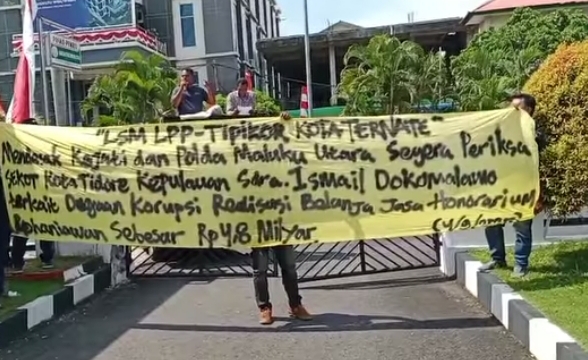 "LSM LPP-TIPIKOR KOTA TERNATE"
Mendesak Kajati dan Polda Maluku Utara Segera Periksa
SEKOT Kota Tidore Kepulauan Sdra. Ismail Dokomalamo
terkait Dugaan Korupsi Realisasi Belanja Jasa Honorarium
Rohaniawan Sebesar Rp 4,8 Milyar.